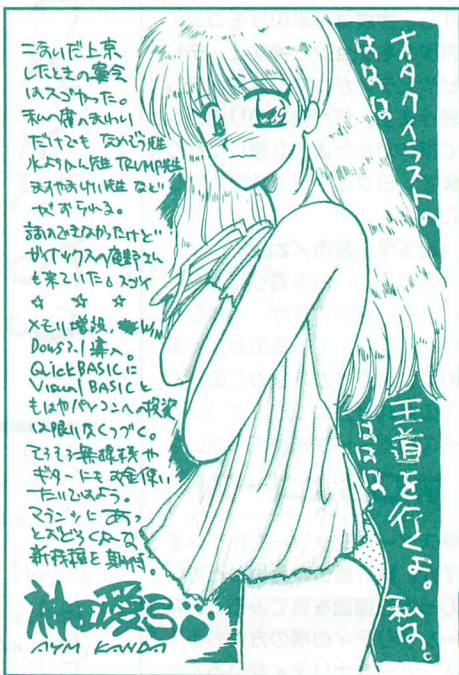 オタクイラストの
ははは
王道を行くよ。私は。
ははは
こないだ上京
したときの宴会
はスゴかった。
私の席のまわり
だけでも なめぞう先生
水ようかん先生 TRUMP先生
ますやまけい先生 など
がおられる。
話はできなかったけど
ガイナックスの庵野さん
も来ていた。スゴイ
☆ ☆ ☆
メモリ増設、WIN
DOWS3.1導入。
QuickBASICに
Visual BASICと
もはやパソコンへの投資
は限りなくつづく。
そろそろ無線機や
ギターにもお金使い
たいではよう。
マランツに あっ
とおどろくよーな
新採譜を期待。
神田愛ミ
AYM KANDA